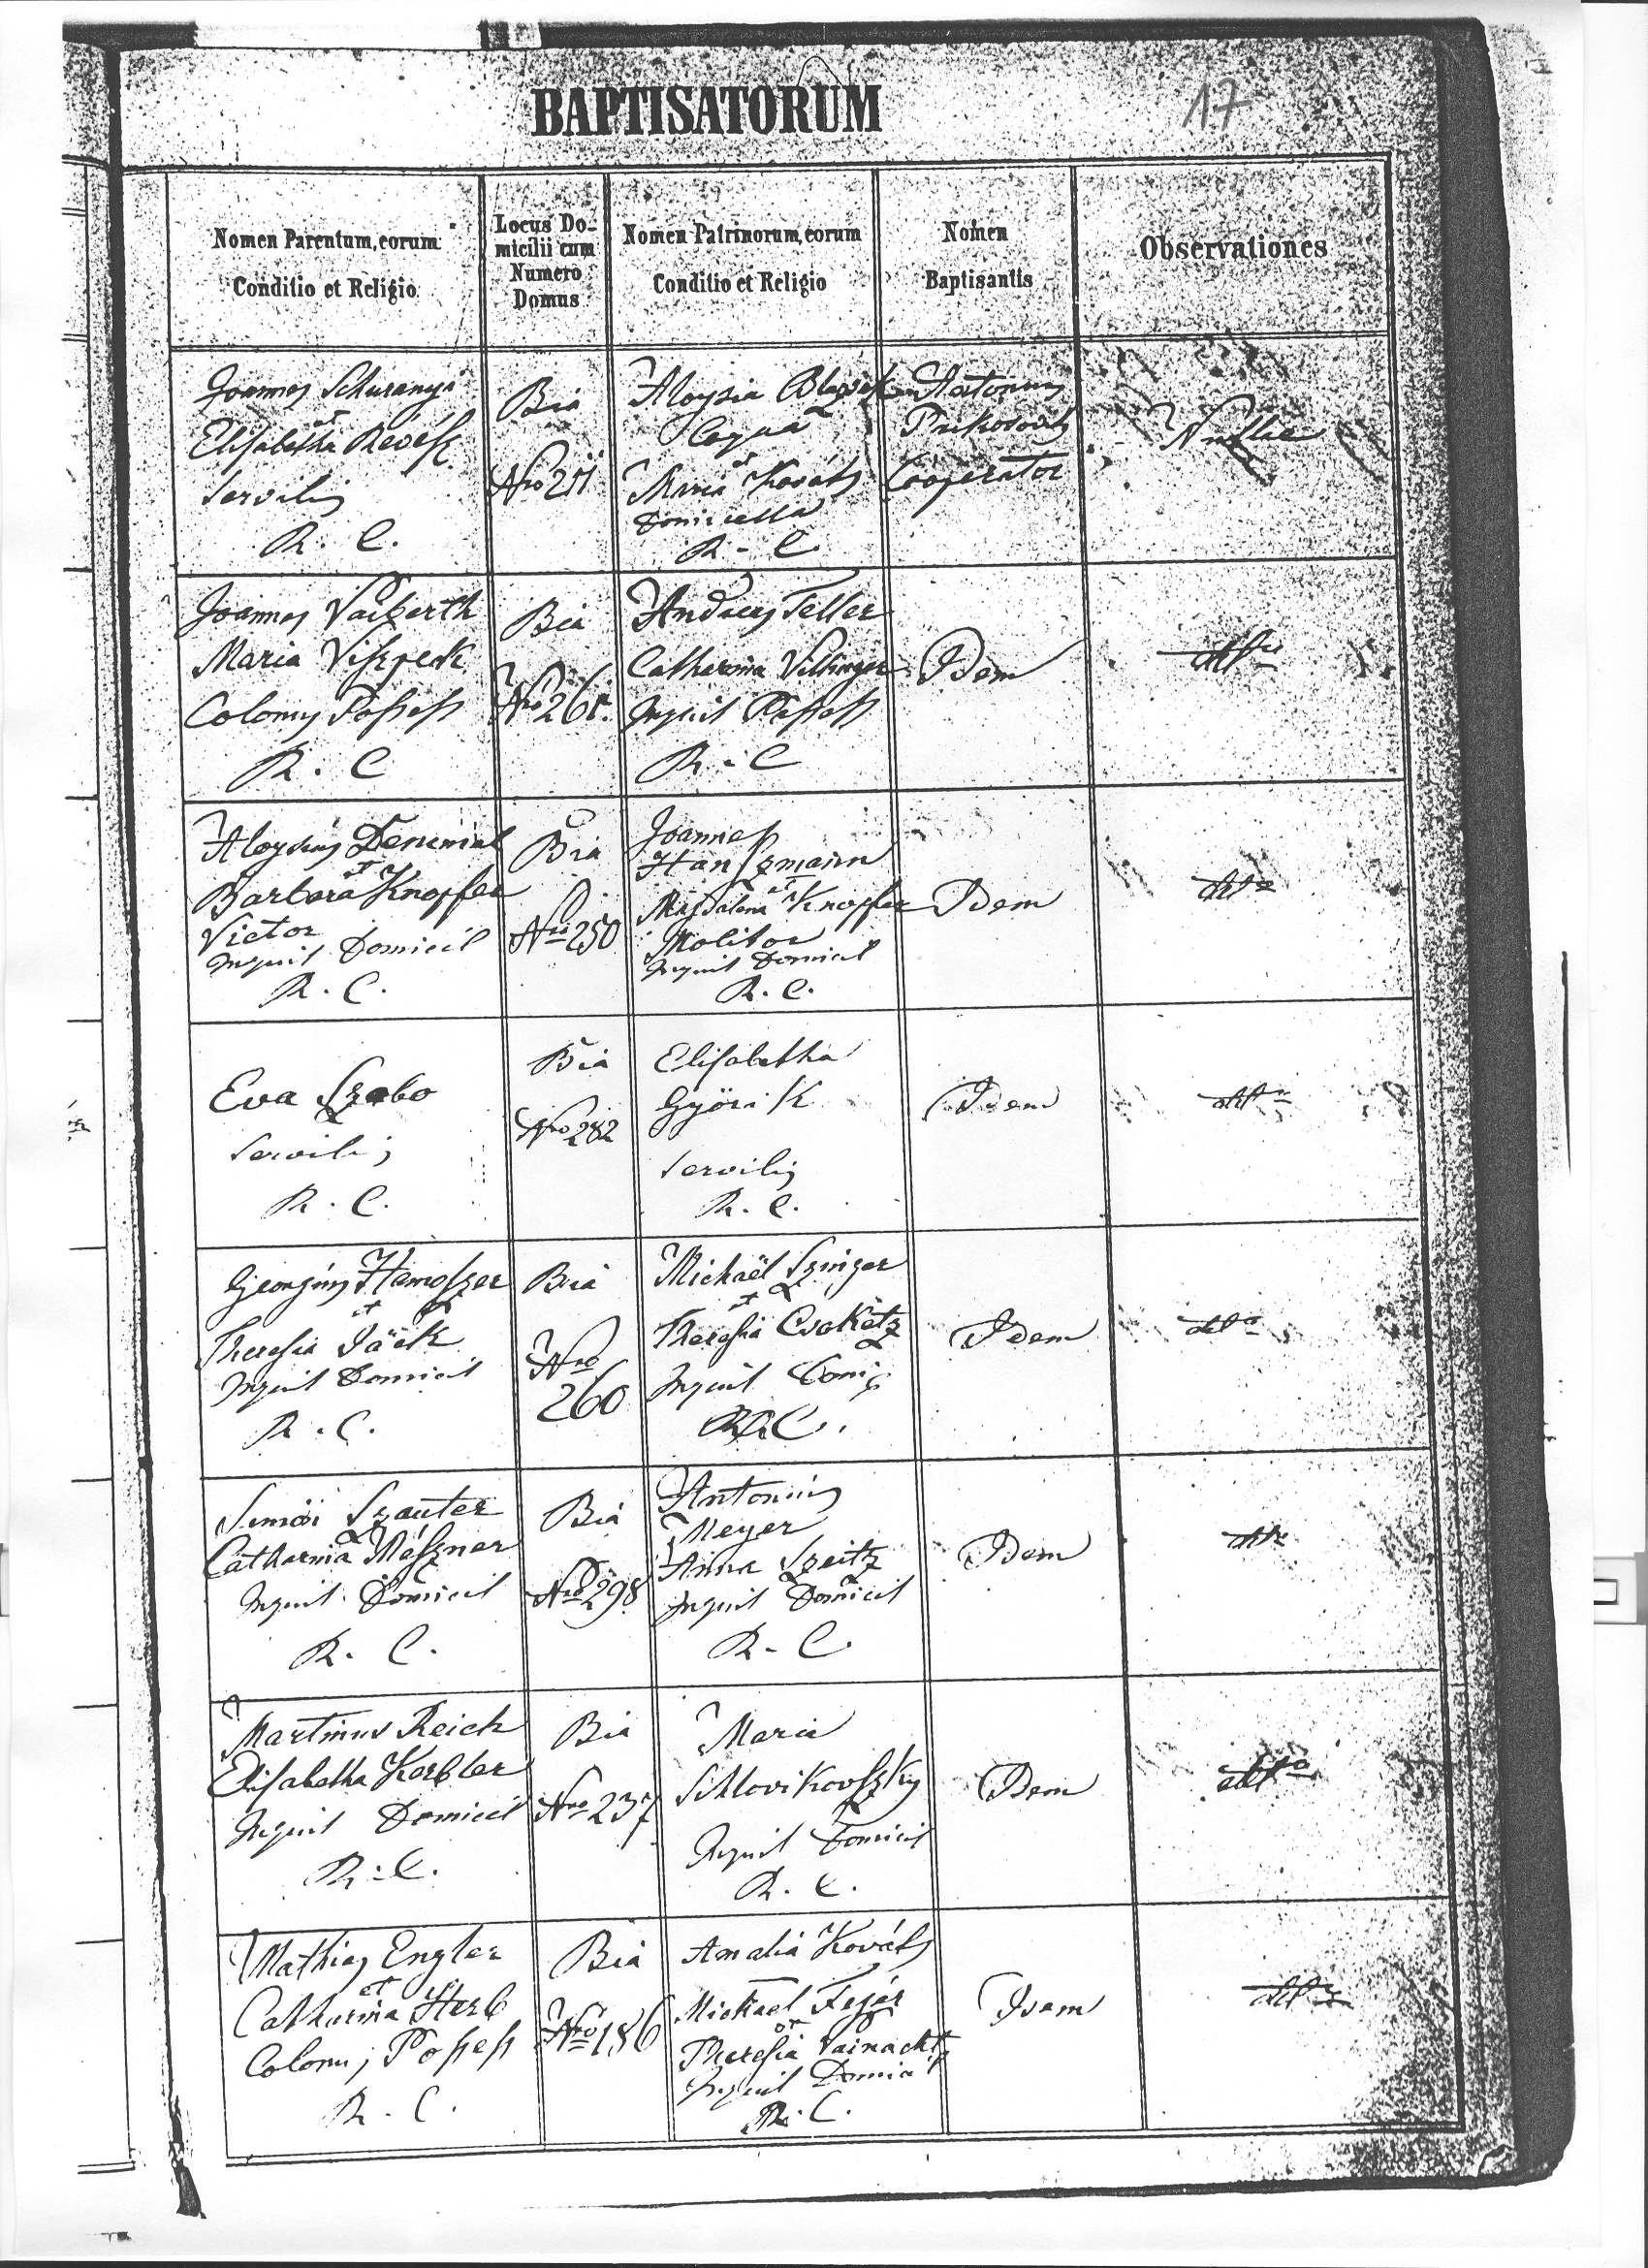 BAPTISATORUM
17
Nomen Parentum, eorum
Conditio et Religio
Locus Do-
micilii cum
Numero
Domus
Nomen Patrinorum, eorum
Conditio et Religio
Nomen
Baptisantis
Observationes
Joannes Schuranyi
et
Elisabetha Revész
Servilis
R. C.
Bia
Nro 211
Aloysia
et
Maria Kováts
Domicella
R. C.
Antonius
Cooperator
Nullae
Joannes
Maria
Colonus Possess
R. C
Bia
Nro 261.
Andreas Teller
Catharina
Inquil Possess
R. C
Idem
detto
Aloysius
et
Barbara Knopfer
Vietor
Inquil Domicil
R. C.
Bia
Nro 250
Joannes
Hanszmann
et
Magdalena Knopfer
Molitor
Inquil Domicil
R. C.
Idem
detto
Eva Szabo
Servilis
R. C.
Bia
Nro 282
Elisabetha
Györik
Servilis
R. C.
Idem
detto
Georgius
et
Theresia Jäck
Inquil Domicil
R. C.
Bia
Nro
260
Michaël Szinger
et
Theresia
Inquil
R. C.
Idem
detto
Simon Szauter
Catharina Mészner
Inquil Domicil
R. C.
Bia
Nro 298
Antonius
Meyer
Anna Szeitz
Inquil Domicil
R. C.
Idem
detto
Martinus Reich
Elisabetha Korbler
Inquil Domicil
R. C.
Bia
Nro 237
Maria
Inquil Domicil
R. C.
Idem
detto
Mathias Engler
et
Catharina Herb
Colonus Possess
R. C.
Bia
Nro 186
Amalia Kováts
Michael Fejér
et
Theresia Vainacht
Inquil Domicil
R. C.
Idem
detto